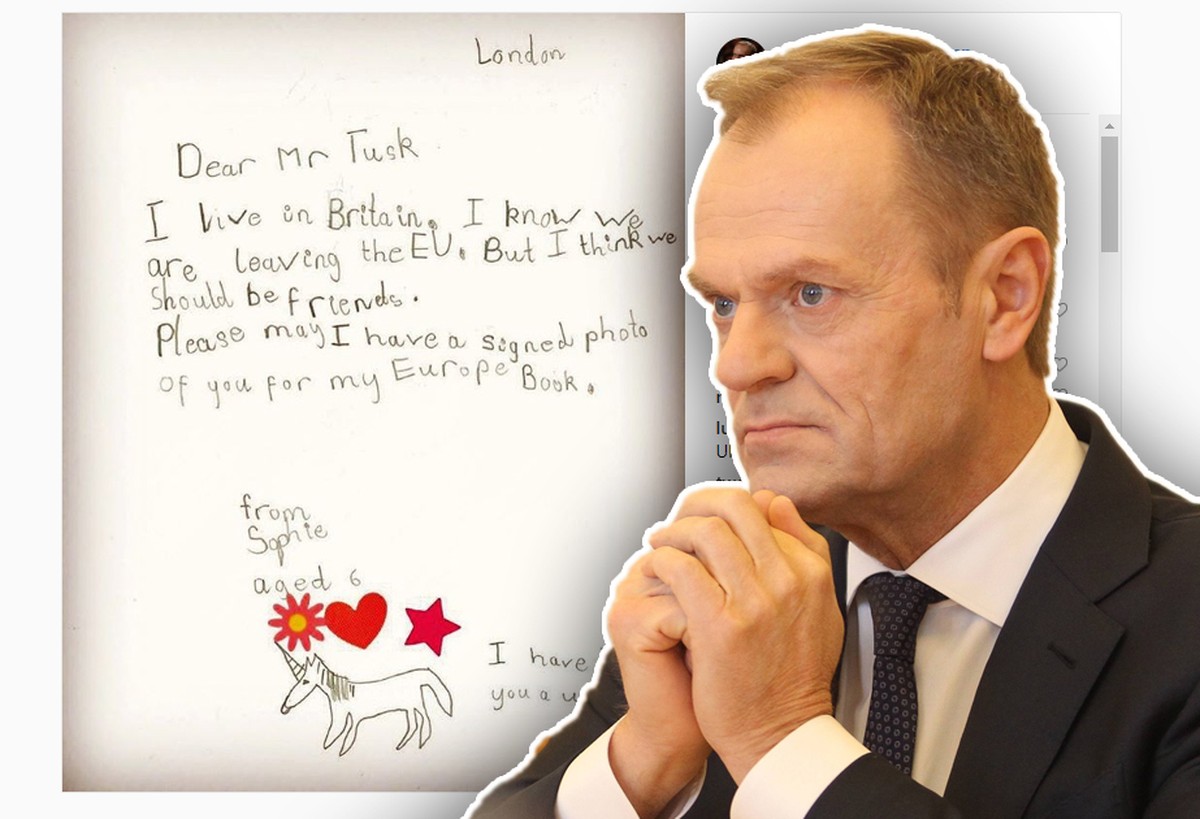 London
Dear Mr Tusk
I live in Britain. I know we
are leaving the EU. But I think we
should be friends.
Please may I have a signed photo
of you for my Europe Book.
from
Sophie
aged 6
I have
you a